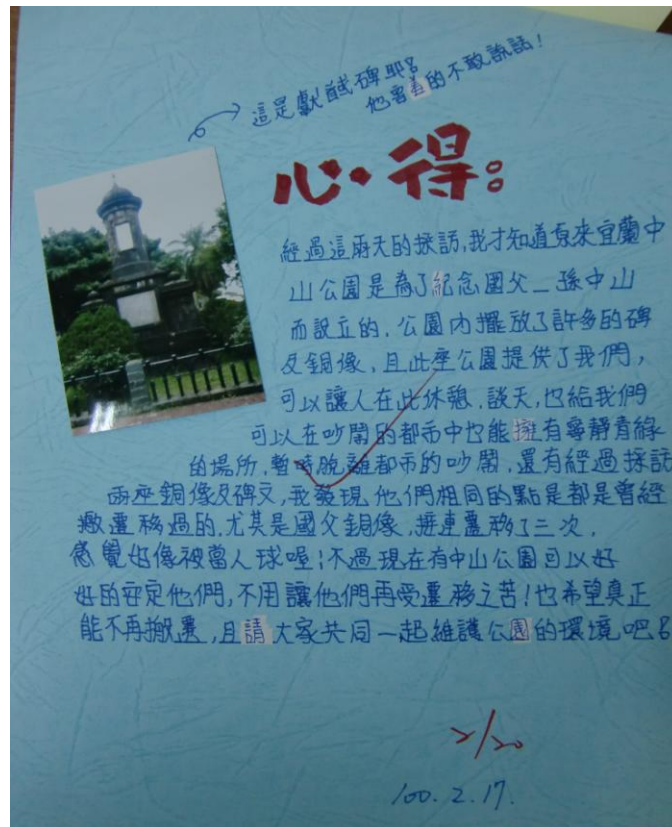 這是獻馘碑耶!
他害羞的不敢說話!
心‧得:
經過這兩天的採訪,我才知道原來宜蘭中
山公園是為了紀念國父_孫中山
而設立的,公園內擺放了許多的碑
及銅像,且此座公園提供了我們,
可以讓人在此休憩、談天,也給我們
可以在吵鬧的都市中也能擁有寧靜青綠
的場所,暫時脫離都市的吵鬧,還有經過採訪
兩座銅像及碑文,我發現他們相同的點是都是曾經
搬遷移過的,尤其是國父銅像,接連遷移了三次,
感覺好像被當人球喔!不過現在有中山公園可以好
好的安定他們,不用讓他們再受遷移之苦!也希望真正
能不再搬遷,且請大家共同一起維護公園的環境吧!
2/20
100.2.17.